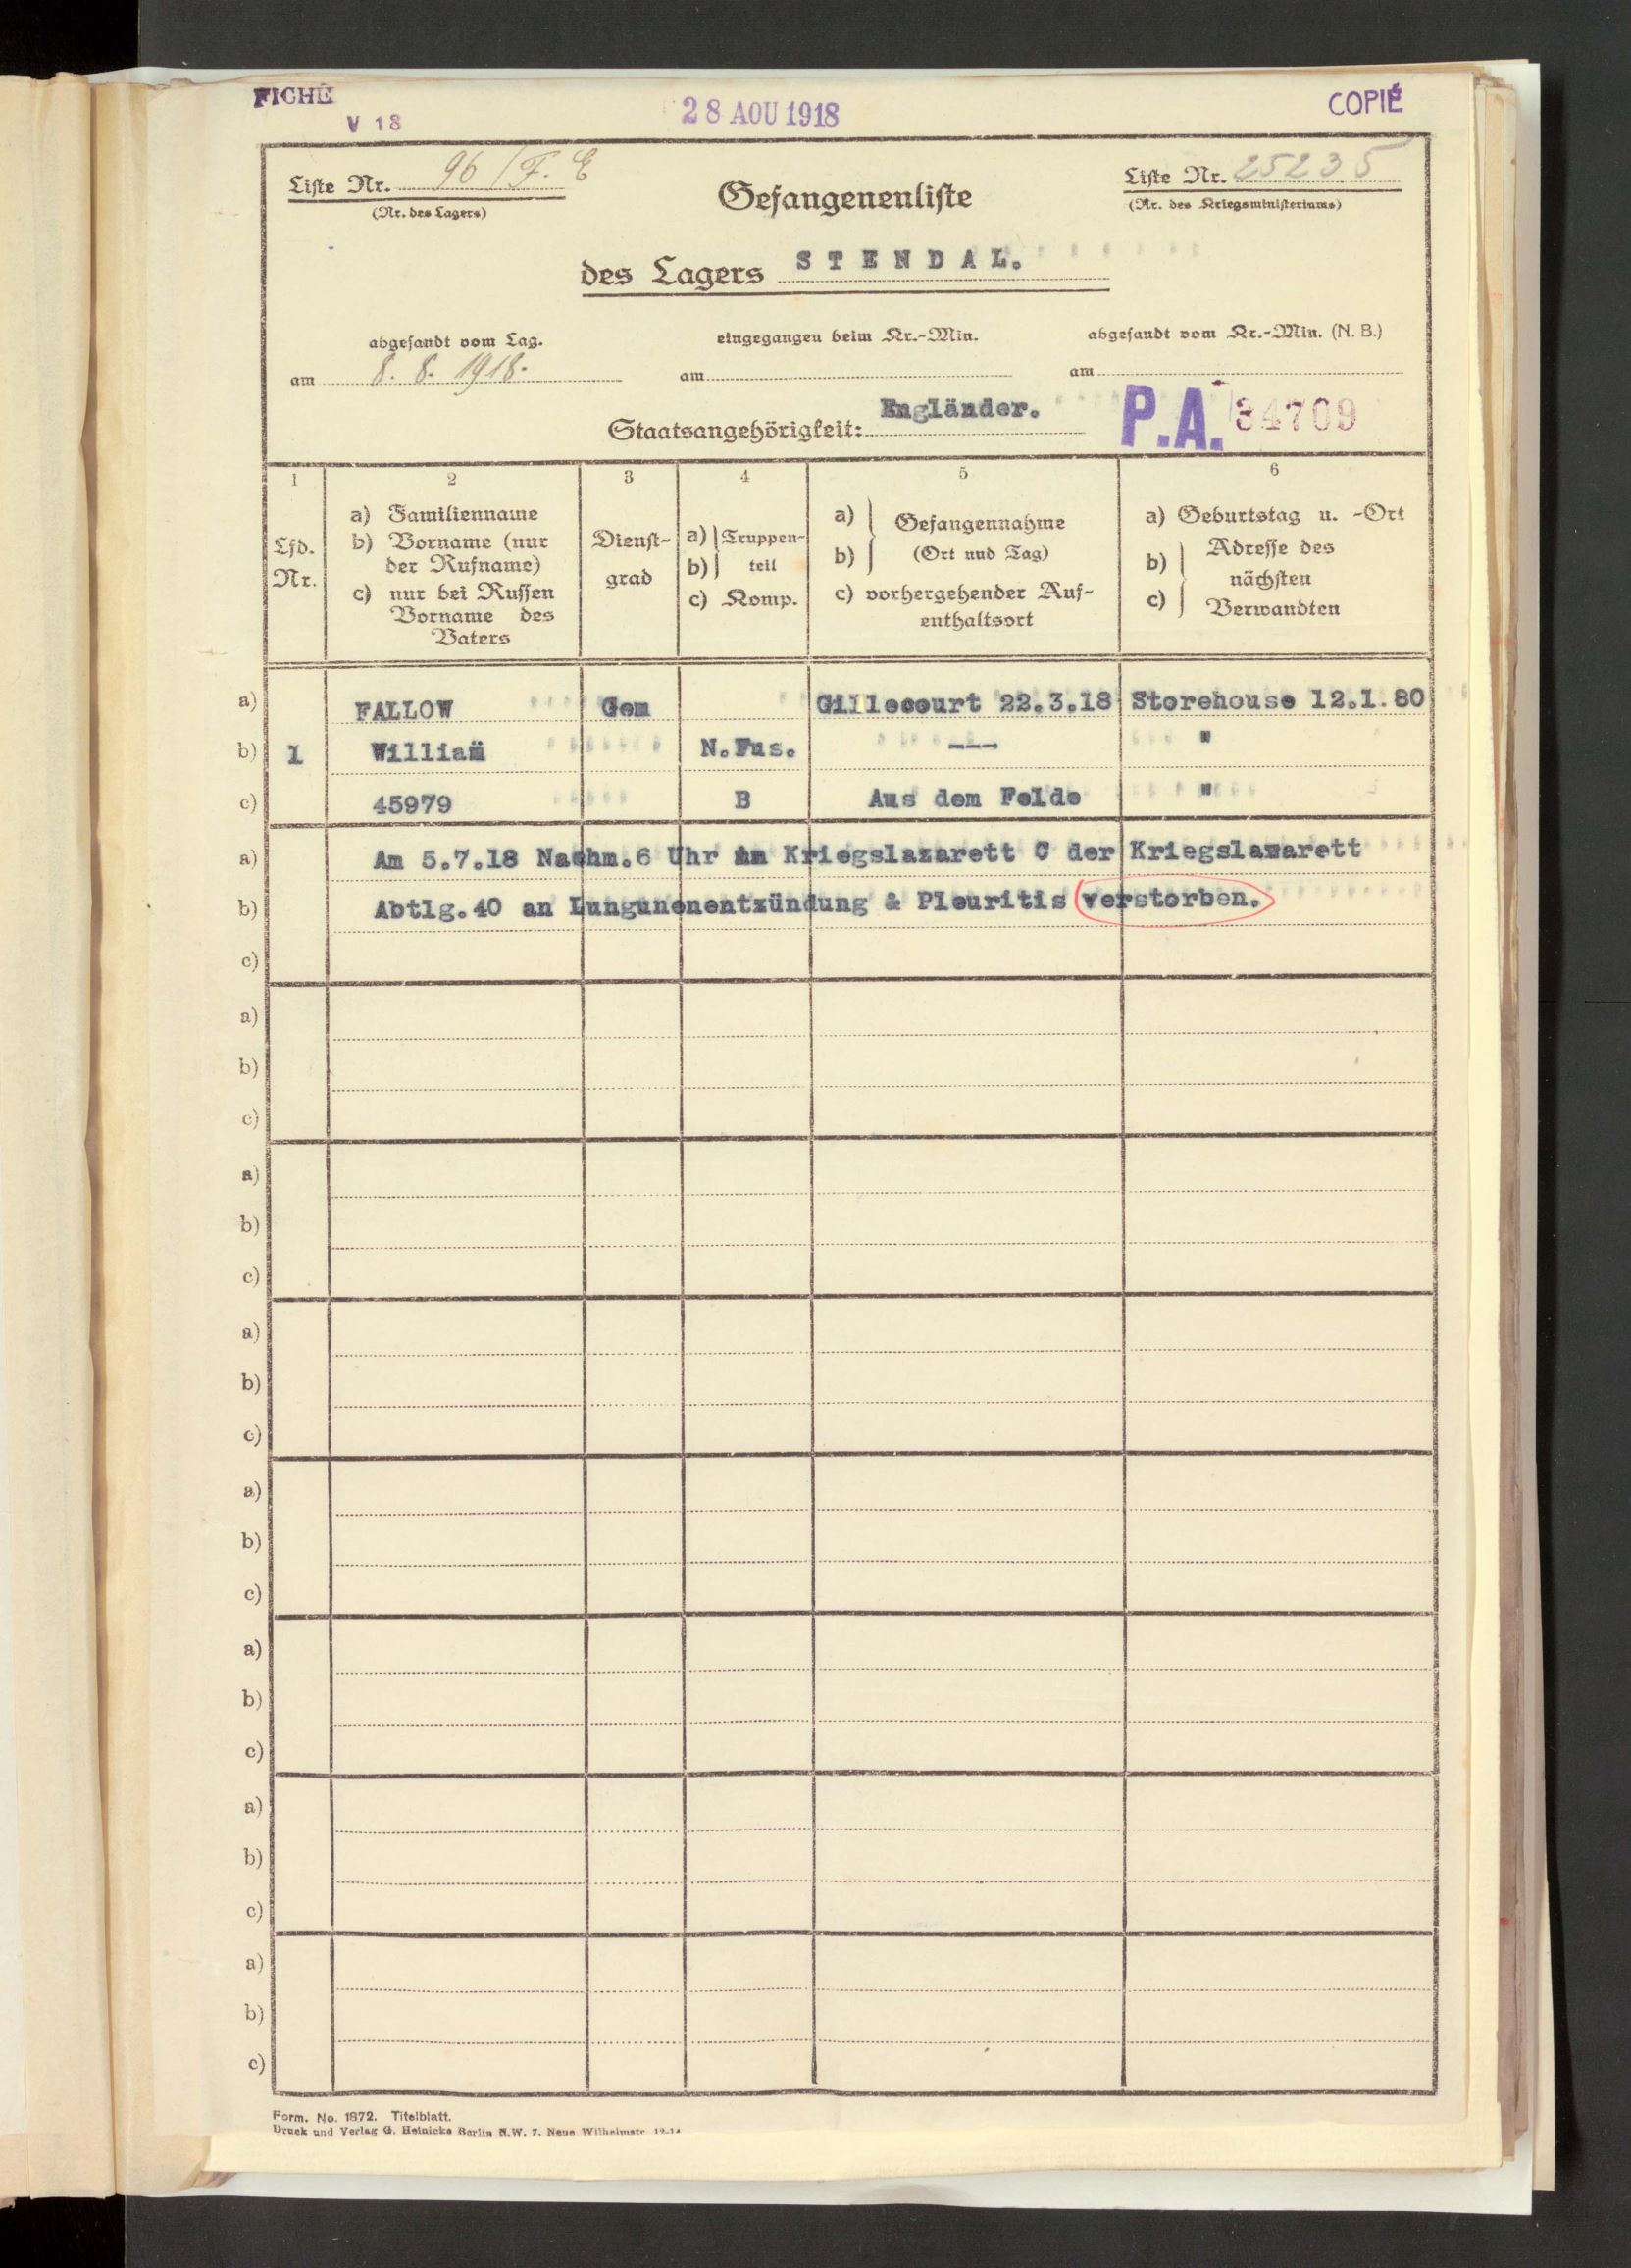 FICHÉ
V 18
28 AOU 1918
COPIÉ
Liste Nr. 96 / F. E
(Nr. des Lagers)
Gefangenenliste
Liste Nr. 25235
(Nr. des Kriegsministeriums)
des Lagers STENDAL.
abgesandt vom Lag.
eingegangen beim Kr.-Min.
abgesandt vom Kr.-Min. (N. B.)
am 8. 8. 1918.
am
am
Staatsangehörigkeit: Engländer.
P.A. 34709
1 2 3 4 5 6
Lfd. Nr.
a) Familienname
b) Vorname (nur
der Rufname)
c) nur bei Russen
Vorname des
Vaters
Dienst-
grad
a) Truppen-
b) teil
c) Komp.
a) Gefangennahme
b) (Ort und Tag)
c) vorhergehender Auf-
enthaltsort
a) Geburtstag u. -Ort
b) Adresse des
nächsten
c) Verwandten
a) FALLOW Gem Gillecourt 22.3.18 Storehouse 12.1.80
b) 1 William N.Fus. --- "
c) 45979 B Aus dem Felde "
a) Am 5.7.18 Nachm.6 Uhr im Kriegslazarett C der Kriegslazarett
b) Abtlg.40 an Lungunenentzündung & Pleuritis verstorben.
c)
a)
b)
c)
a)
b)
c)
a)
b)
c)
a)
b)
c)
a)
b)
c)
a)
b)
c)
a)
b)
c)
Form. No. 1872. Titelblatt.
Druck und Verlag G. Heinicke Berlin N.W. 7. Neue Wilhelmstr.